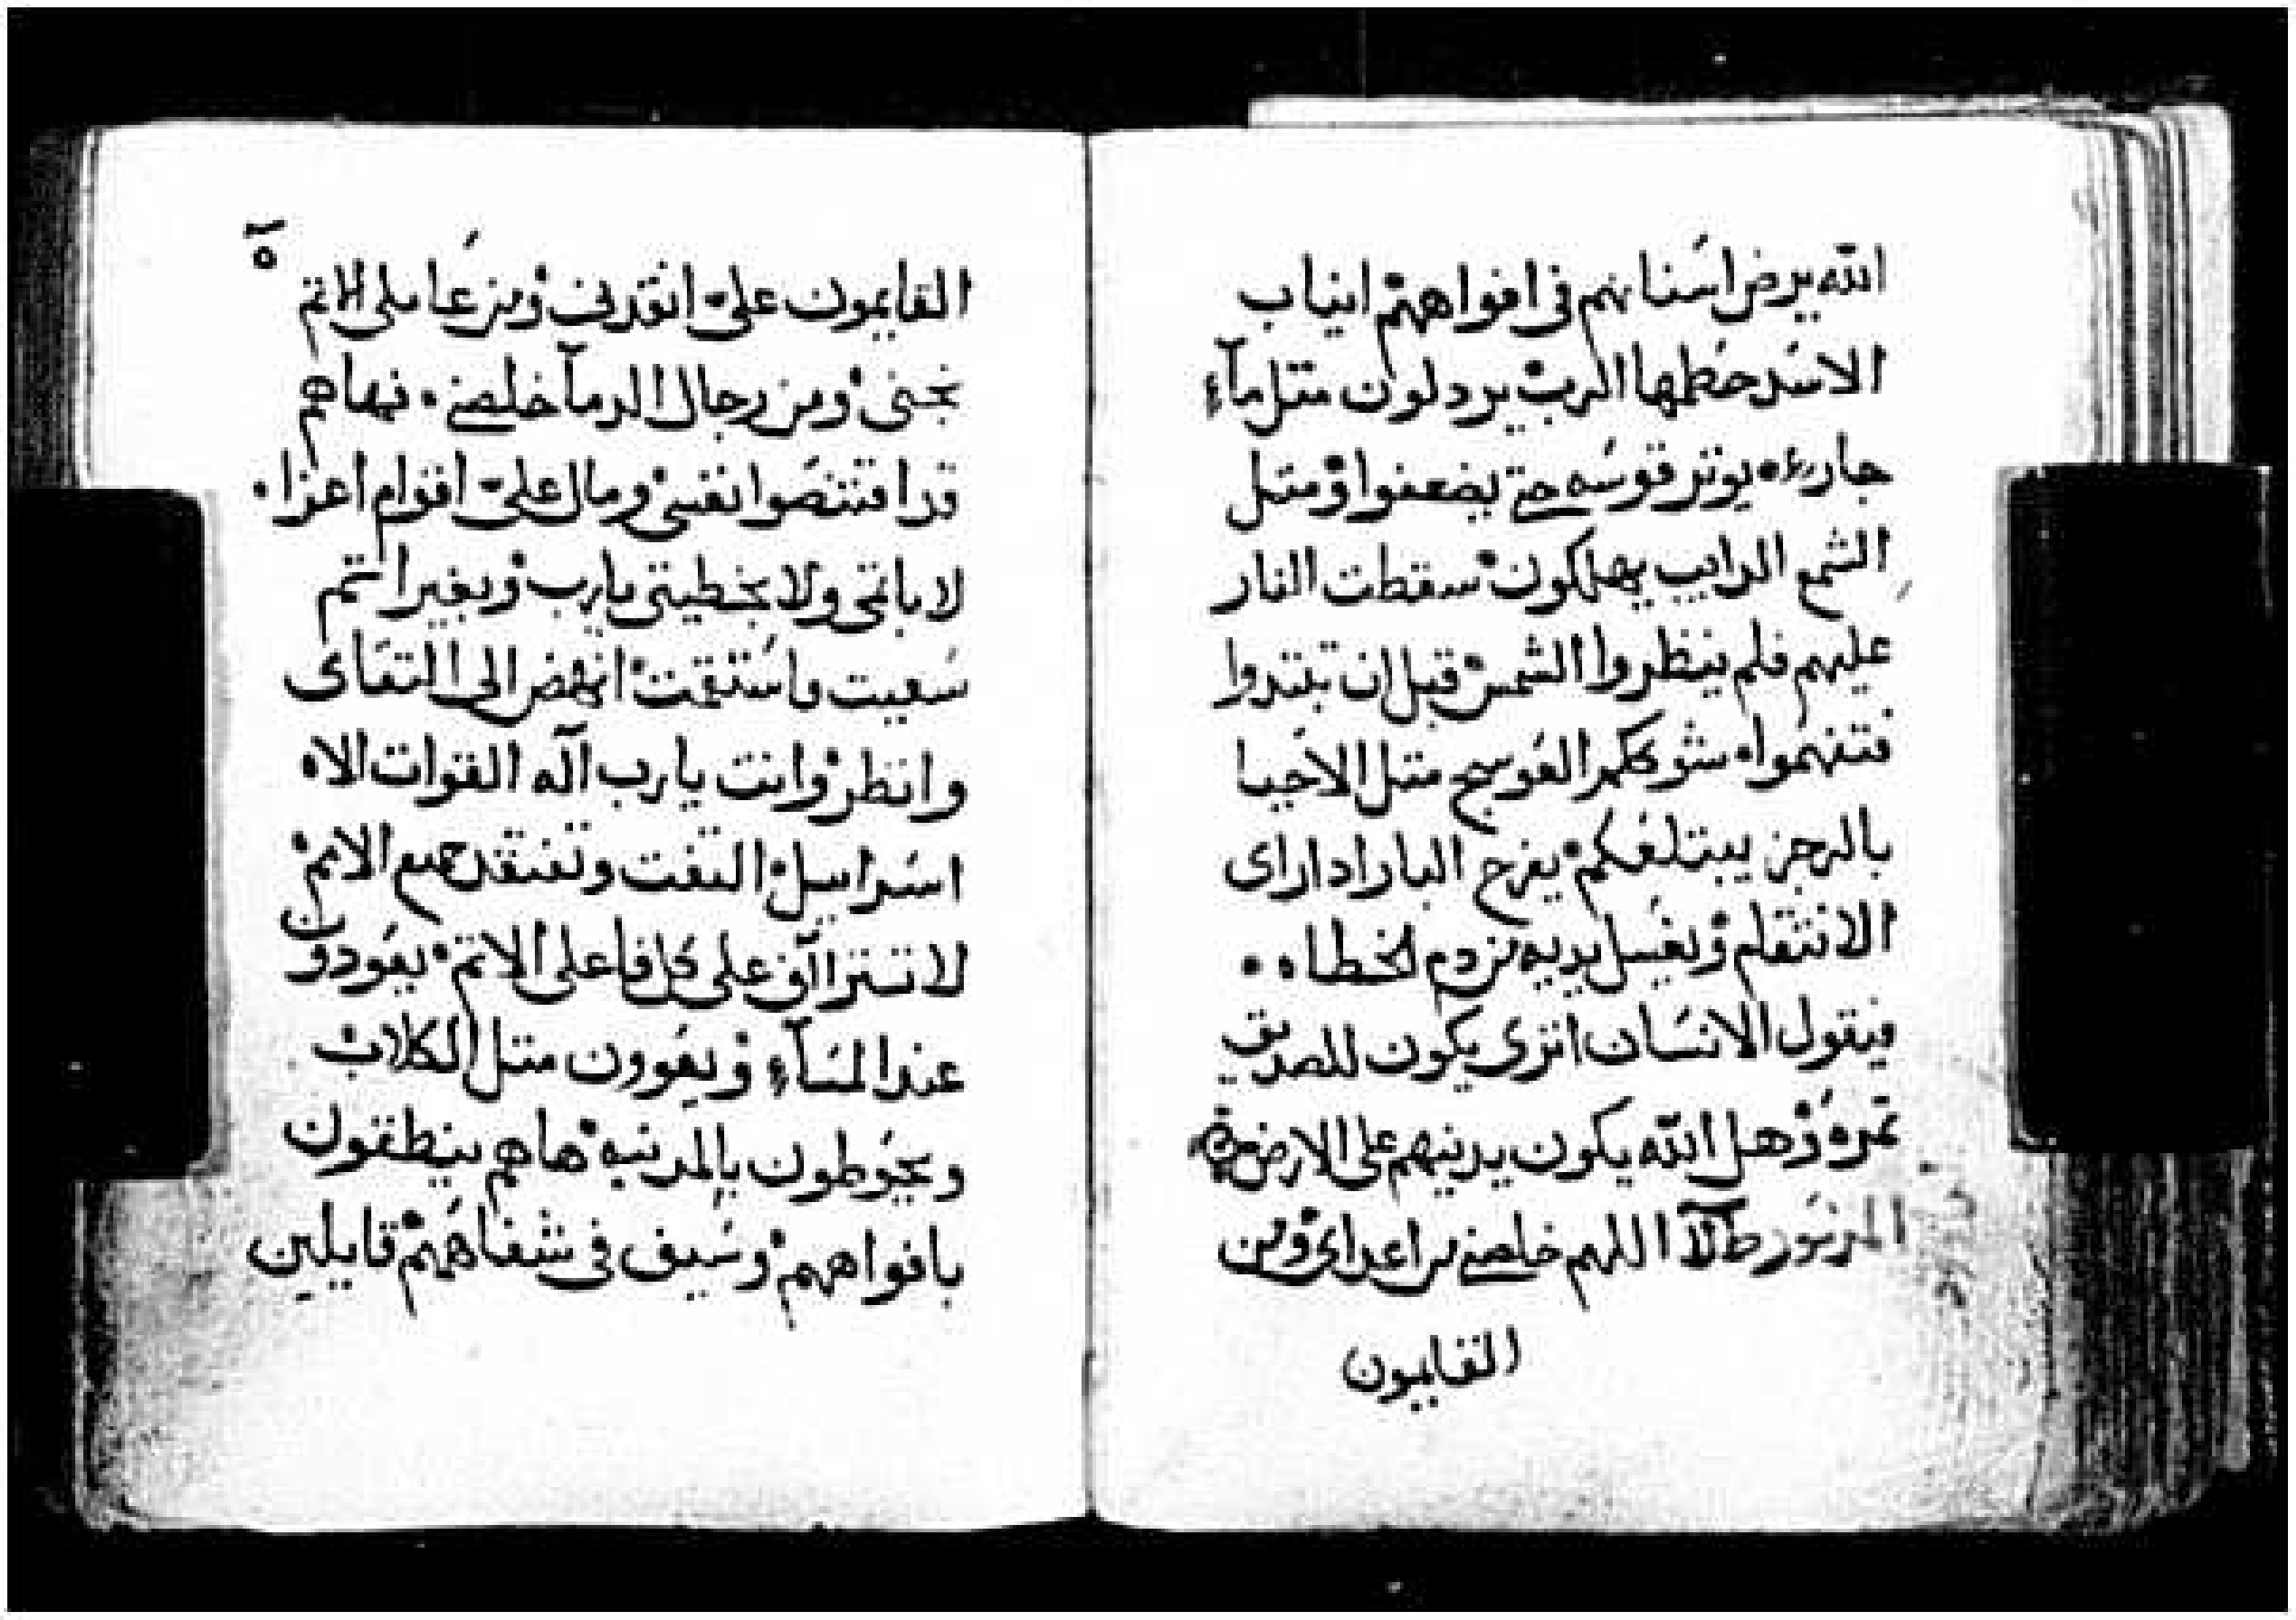 الله يرض اسنانهم فى افواههم انياب
الاسد حطمها الرب يردلون متل مآء
جاريه يوتر قوسه حتى يضعفوا ومتل
الشمع الدايب يهلكون سقطت النار
عليهم فلم ينظروا الشمس قبل ان تبتدوا
فتفهموا شوككم العوسج متل الاحيا
بالرجز يبتلعكم يفرح البار ادا راى
الانتقام ويغسل يديه من دم الخطاه
فيقول الانسان اترى يكون للصديق
تمره وهل الله يكون يدينهم على الارض
المزمور اللهم خلصنى من اعداى ومن
القايمون
القايمون على انقدنى ومن عاملى الاتم
نجنى ومن رجال الدمآ خلصنى فهاهم
قد اقتنصوا نفسى ومال على اقوام اعزا
لا باتمى ولا بخطيتى يارب وبغير اتم
سعيت واستقمت انهض الى التقاى
وانظر وانت يارب آله القوات الاه
اسراييل التفت وتفتقد جميع الامم
لا تتراآف على كل فاعلى الاتم يعودون
عند المسآء ويعوون متل الكلاب
ويحوطون بالمدينه هاهم ينطقون
بافواههم وسيف فى شفاههم قايلين